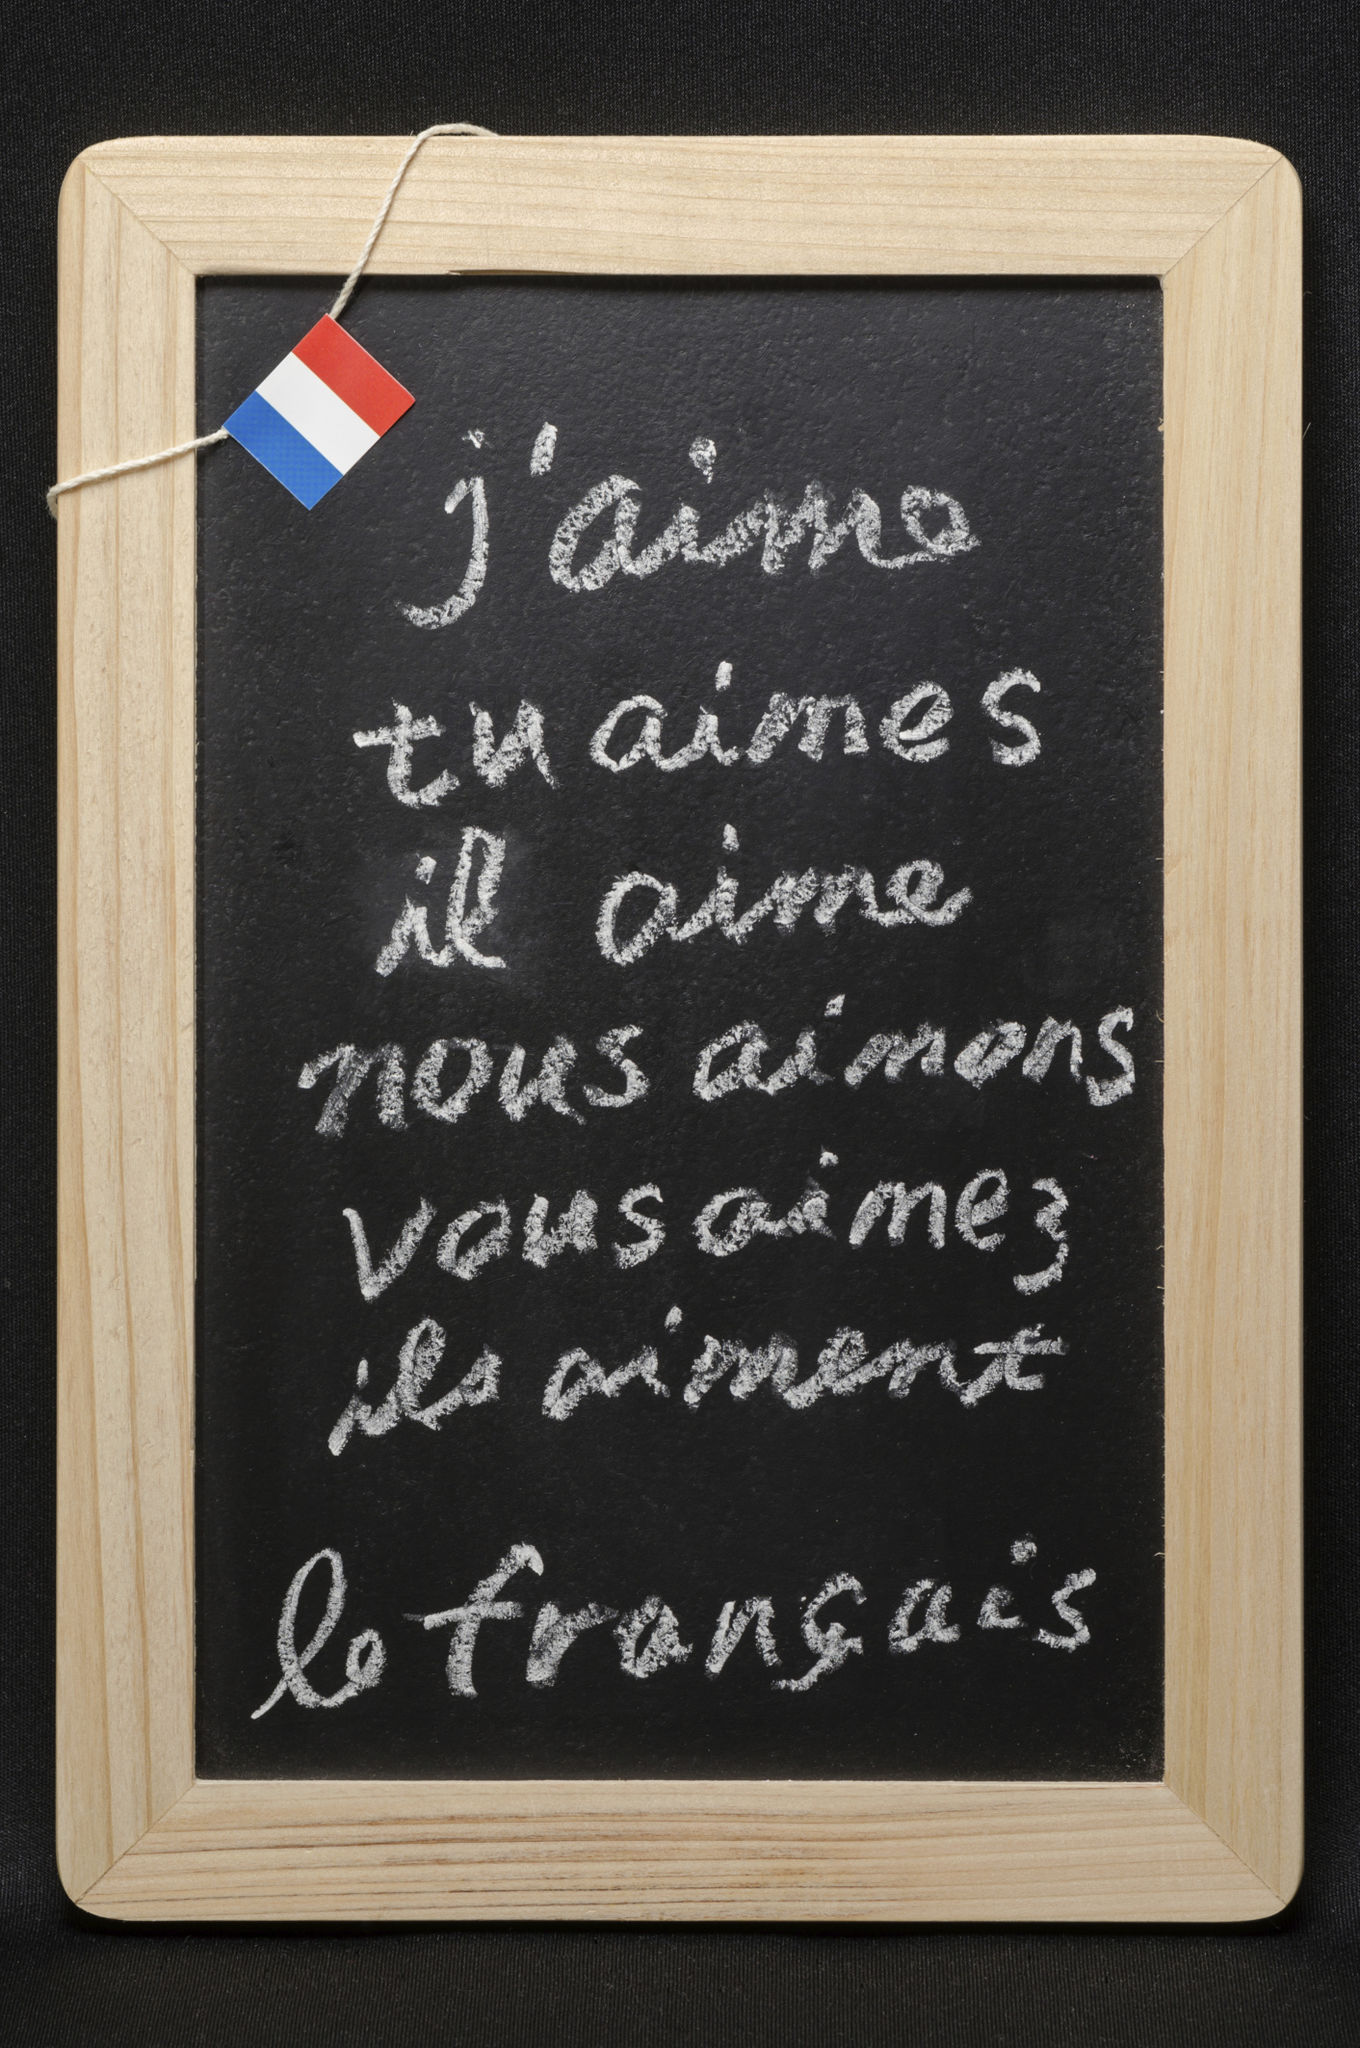 j'aime
tu aimes
il aime
nous aimons
vous aimez
ils aiment
le français